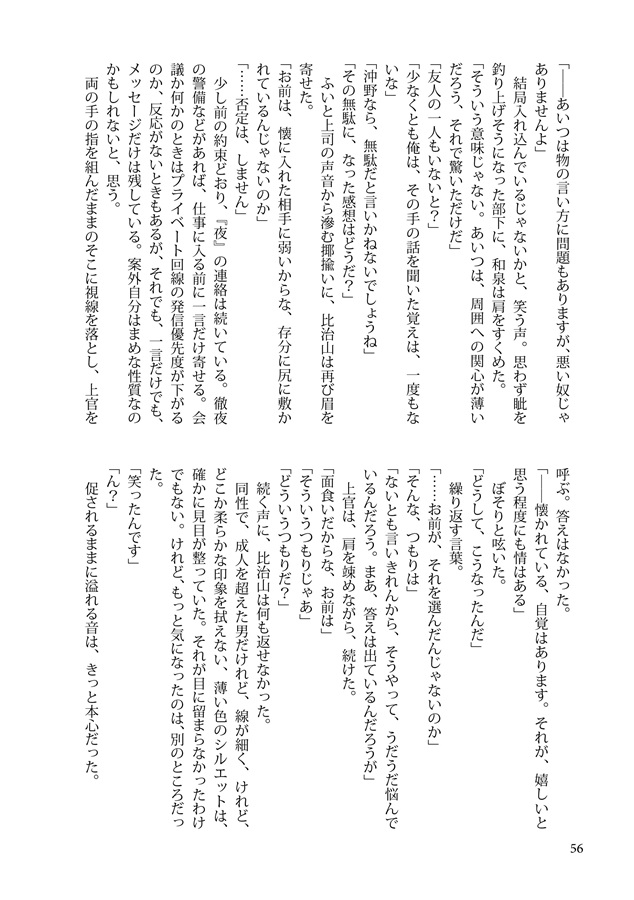 「――あいつは物の言い方に問題もありますが、悪い奴じゃ
ありませんよ」
　結局入れ込んでいるじゃないかと、笑う声。思わず眦を
釣り上げそうになった部下に、和泉は肩をすくめた。
「そういう意味じゃない。あいつは、周囲への関心が薄い
だろう、それで驚いただけだ」
「友人の一人もいないと？」
「少なくとも俺は、その手の話を聞いた覚えは、一度もな
いな」
「沖野なら、無駄だと言いかねないでしょうね」
「その無駄に、なった感想はどうだ？」
　ふいと上司の声音から滲む揶揄いに、比治山は再び眉を
寄せた。
「お前は、懐に入れた相手に弱いからな、存分に尻に敷か
れているんじゃないのか」
「……否定は、しません」
　少し前の約束どおり、『夜』の連絡は続いている。徹夜
の警備などがあれば、仕事に入る前に一言だけ寄せる。会
議か何かのときはプライベート回線の発信優先度が下がる
のか、反応がないときもあるが、それでも、一言だけでも、
メッセージだけは残している。案外自分はまめな性質なの
かもしれないと、思う。
　両の手の指を組んだままのそこに視線を落とし、上官を
呼ぶ。答えはなかった。
「――懐かれている、自覚はあります。それが、嬉しいと
思う程度にも情はある」
　ぼそりと呟いた。
「どうして、こうなったんだ」
　繰り返す言葉。
「……お前が、それを選んだんじゃないのか」
「そんな、つもりは」
「ないとも言いきれんから、そうやって、うだうだ悩んで
いるんだろう。まあ、答えは出ているんだろうが」
　上官は、肩を竦めながら、続けた。
「面食いだからな、お前は」
「そういうつもりじゃあ」
「どういうつもりだ？」
　続く声に、比治山は何も返せなかった。
　同性で、成人を超えた男だけれど、線が細く、けれど、
どこか柔らかな印象を拭えない、薄い色のシルエットは、
確かに見目が整っていた。それが目に留まらなかったわけ
でもない。けれど、もっと気になったのは、別のところだっ
た。
「笑ったんです」
「ん？」
　促されるままに溢れる音は、きっと本心だった。
56